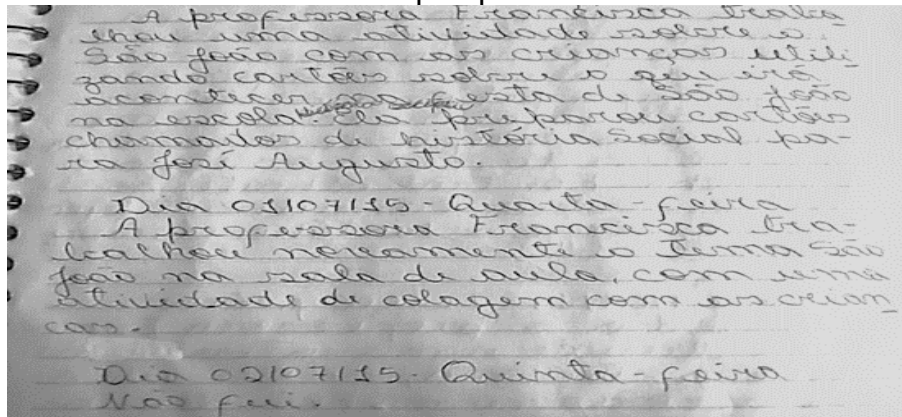 A professora Francisca traba
lhou uma atividade sobre o
São João com as crianças utili
zando cartões sobre o que irá
acontecer na festa de São João
na escola ela preparou cartões
chamados de história social pa-
ra José Augusto.
Dia 01/07/15 - Quarta-feira
A professora Francisca tra-
balhou novamente o tema São
João na sala de aula, com uma
atividade de colagem com as crian
cas.
Dia 02/07/15 - Quinta-feira
Não fui.